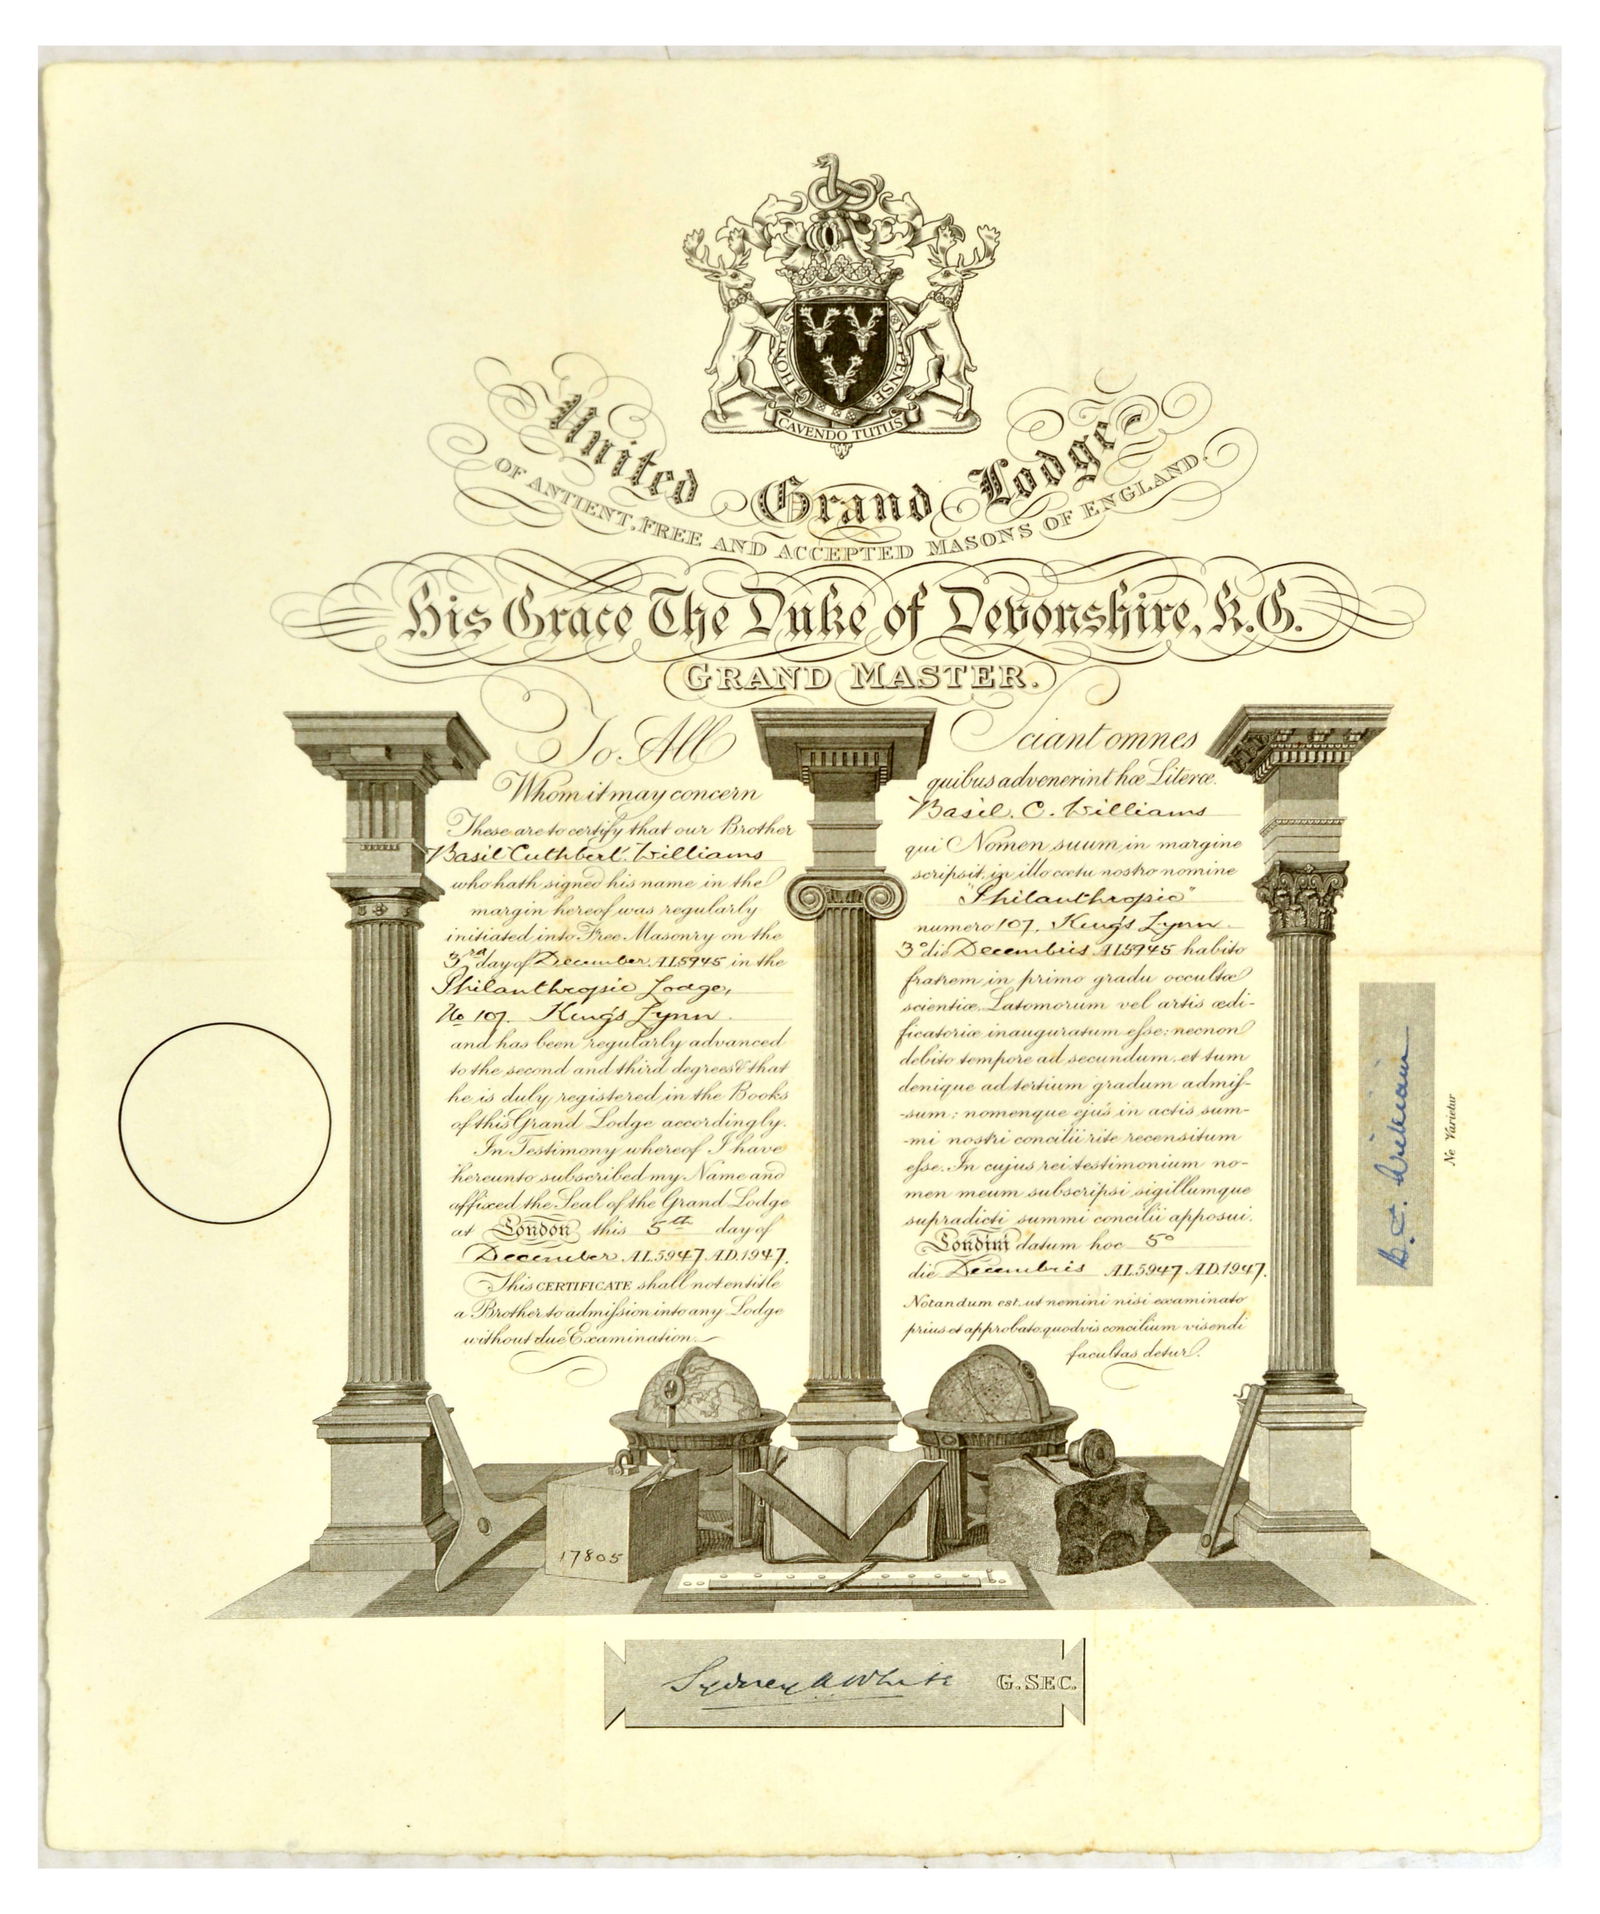 HONI
PENSE
CAVENDO TUTUS
United Grand Lodge
OF ANTIENT, FREE AND ACCEPTED MASONS OF ENGLAND.
His Grace The Duke of Devonshire, K.G.
GRAND MASTER.
To All
Whom it may concern
These are to certify that our Brother
Basil Cuthbert Williams
who hath signed his name in the
margin hereof was regularly
initiated into Free Masonry on the
3rd day of December AL5945 in the
Philanthropic Lodge,
No 107. King's Lynn.
and has been regularly advanced
to the second and third degrees & that
he is duly registered in the Books
of this Grand Lodge accordingly.
In Testimony whereof I have
hereunto subscribed my Name and
affixed the Seal of the Grand Lodge
at London this 5th day of
December AL5947 AD.1947.
This CERTIFICATE shall not entitle
a Brother to admission into any Lodge
without due Examination.
Sciant omnes
quibus advenerint hæ Literæ.
Basil. C. Williams
qui Nomen suum in margine
scripsit, in illo cœtu nostro nomine
"Philanthropic"
numero 107. King's Lynn.
3º die Decembris AL5945 habito
fratrem in primo gradu occultæ
scientiæ Latomorum vel artis ædi-
ficatoriæ inauguratum esse: necnon
debito tempore ad secundum, et tum
denique ad tertium gradum admis-
-sum; nomenque ejus in actis sum-
-mi nostri concilii rite recensitum
esse. In cujus rei testimonium no-
men meum subscripsi sigillumque
supradicti summi concilii apposui.
Londini datum hoc 5º
die Decembris AL5947 AD.1947.
Notandum est, ut nemini nisi examinato
prius et approbato quodvis concilium visendi
facultas detur.
B. C. Williams
Ne Varietur
17805
Sydney A White G. SEC.